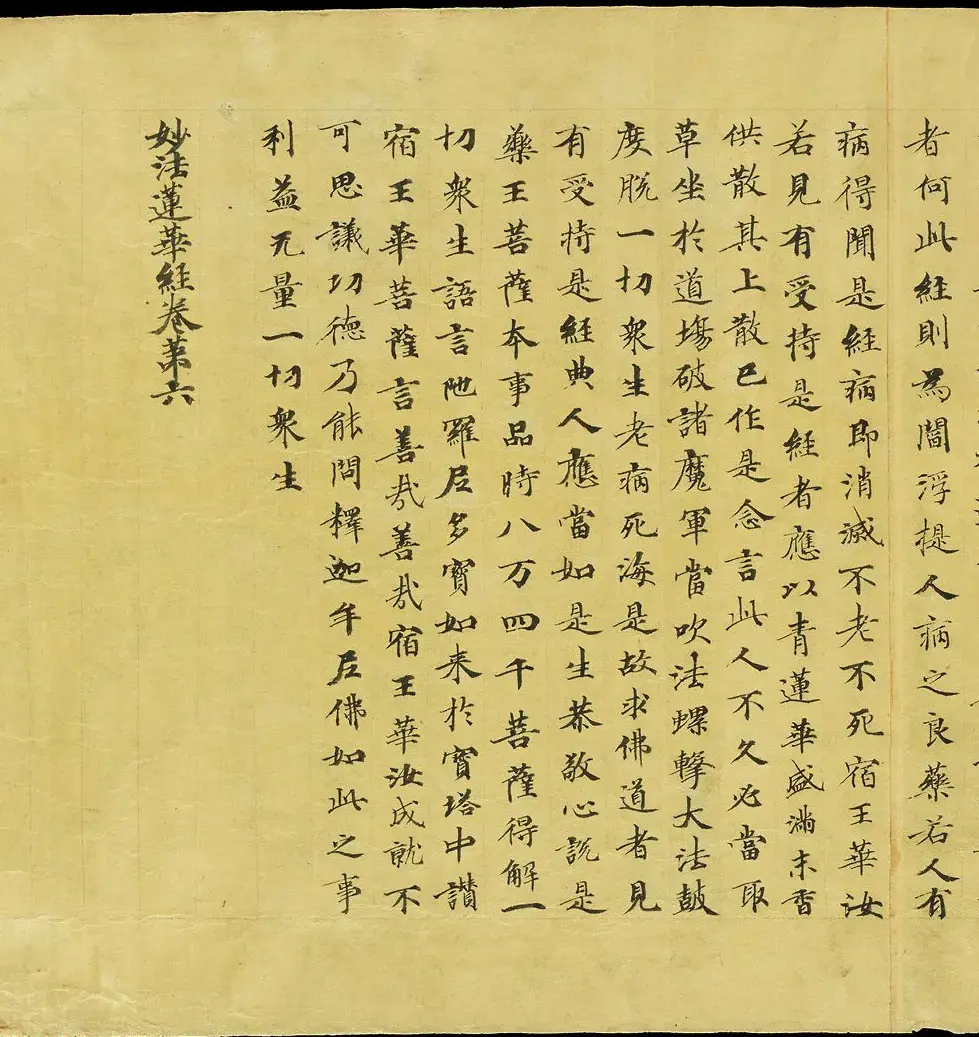 者何此経則為閻浮提人病之良藥若人有
病得聞是経病即消滅不老不死宿王華汝
若見有受持是経者應以青蓮華盛滿末香
供散其上散已作是念言此人不久必當取
草坐於道場破諸魔軍當吹法螺擊大法鼓
度脱一切衆生老病死海是故求佛道者見
有受持是経典人應當如是生恭敬心説是
藥王菩薩本事品時八万四千菩薩得解一
切衆生語言陁羅尼多寶如来於寶塔中讃
宿王華菩薩言善哉善哉宿王華汝成就不
可思議功徳乃能問釋迦牟尼佛如此之事
利益无量一切衆生
妙法蓮華経卷第六